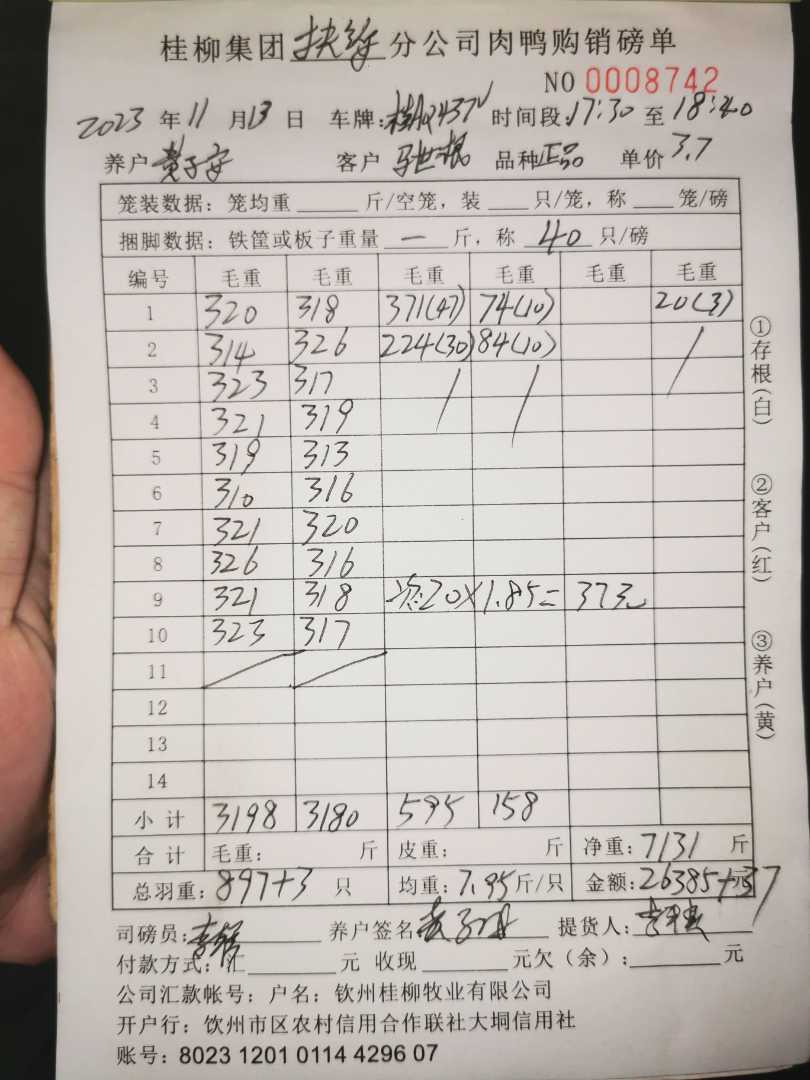 桂柳集团扶绥分公司肉鸭购销磅单
NO 0008742
2023年11月13日 车牌: 时间段:17:30至18:40
养户 黄子安 客户 马世根 品种正品 单价3.7
笼装数据: 笼均重 斤/空笼, 装 只/笼, 称 笼/磅
捆脚数据: 铁筐或板子重量 一 斤, 称 40 只/磅
编号 毛重 毛重 毛重 毛重 毛重 毛重
1 320 318 371(47) 74(10) 20(3)
2 314 326 224(30) 84(10) /
3 323 317 / /
4 321 319
5 319 313
6 310 316
7 321 320
8 326 316
9 321 318 20×1.85= 373
10 323 317
11 / /
12
13
14
小计 3198 3180 595 158
合计 毛重: 斤 皮重: 斤 净重:7131 斤
总羽重:897+3 只 均重:7.95斤/只 金额:26385+37元
司磅员: 养户签名 提货人:
付款方式: 汇 元 收现 元欠(余): 元
公司汇款帐号: 户名: 钦州桂柳牧业有限公司
开户行: 饮州市区农村信用合作联社大垌信用社
账号: 8023 1201 0114 4296 07
①存根(白)
②客户(红)
③养户(黄)